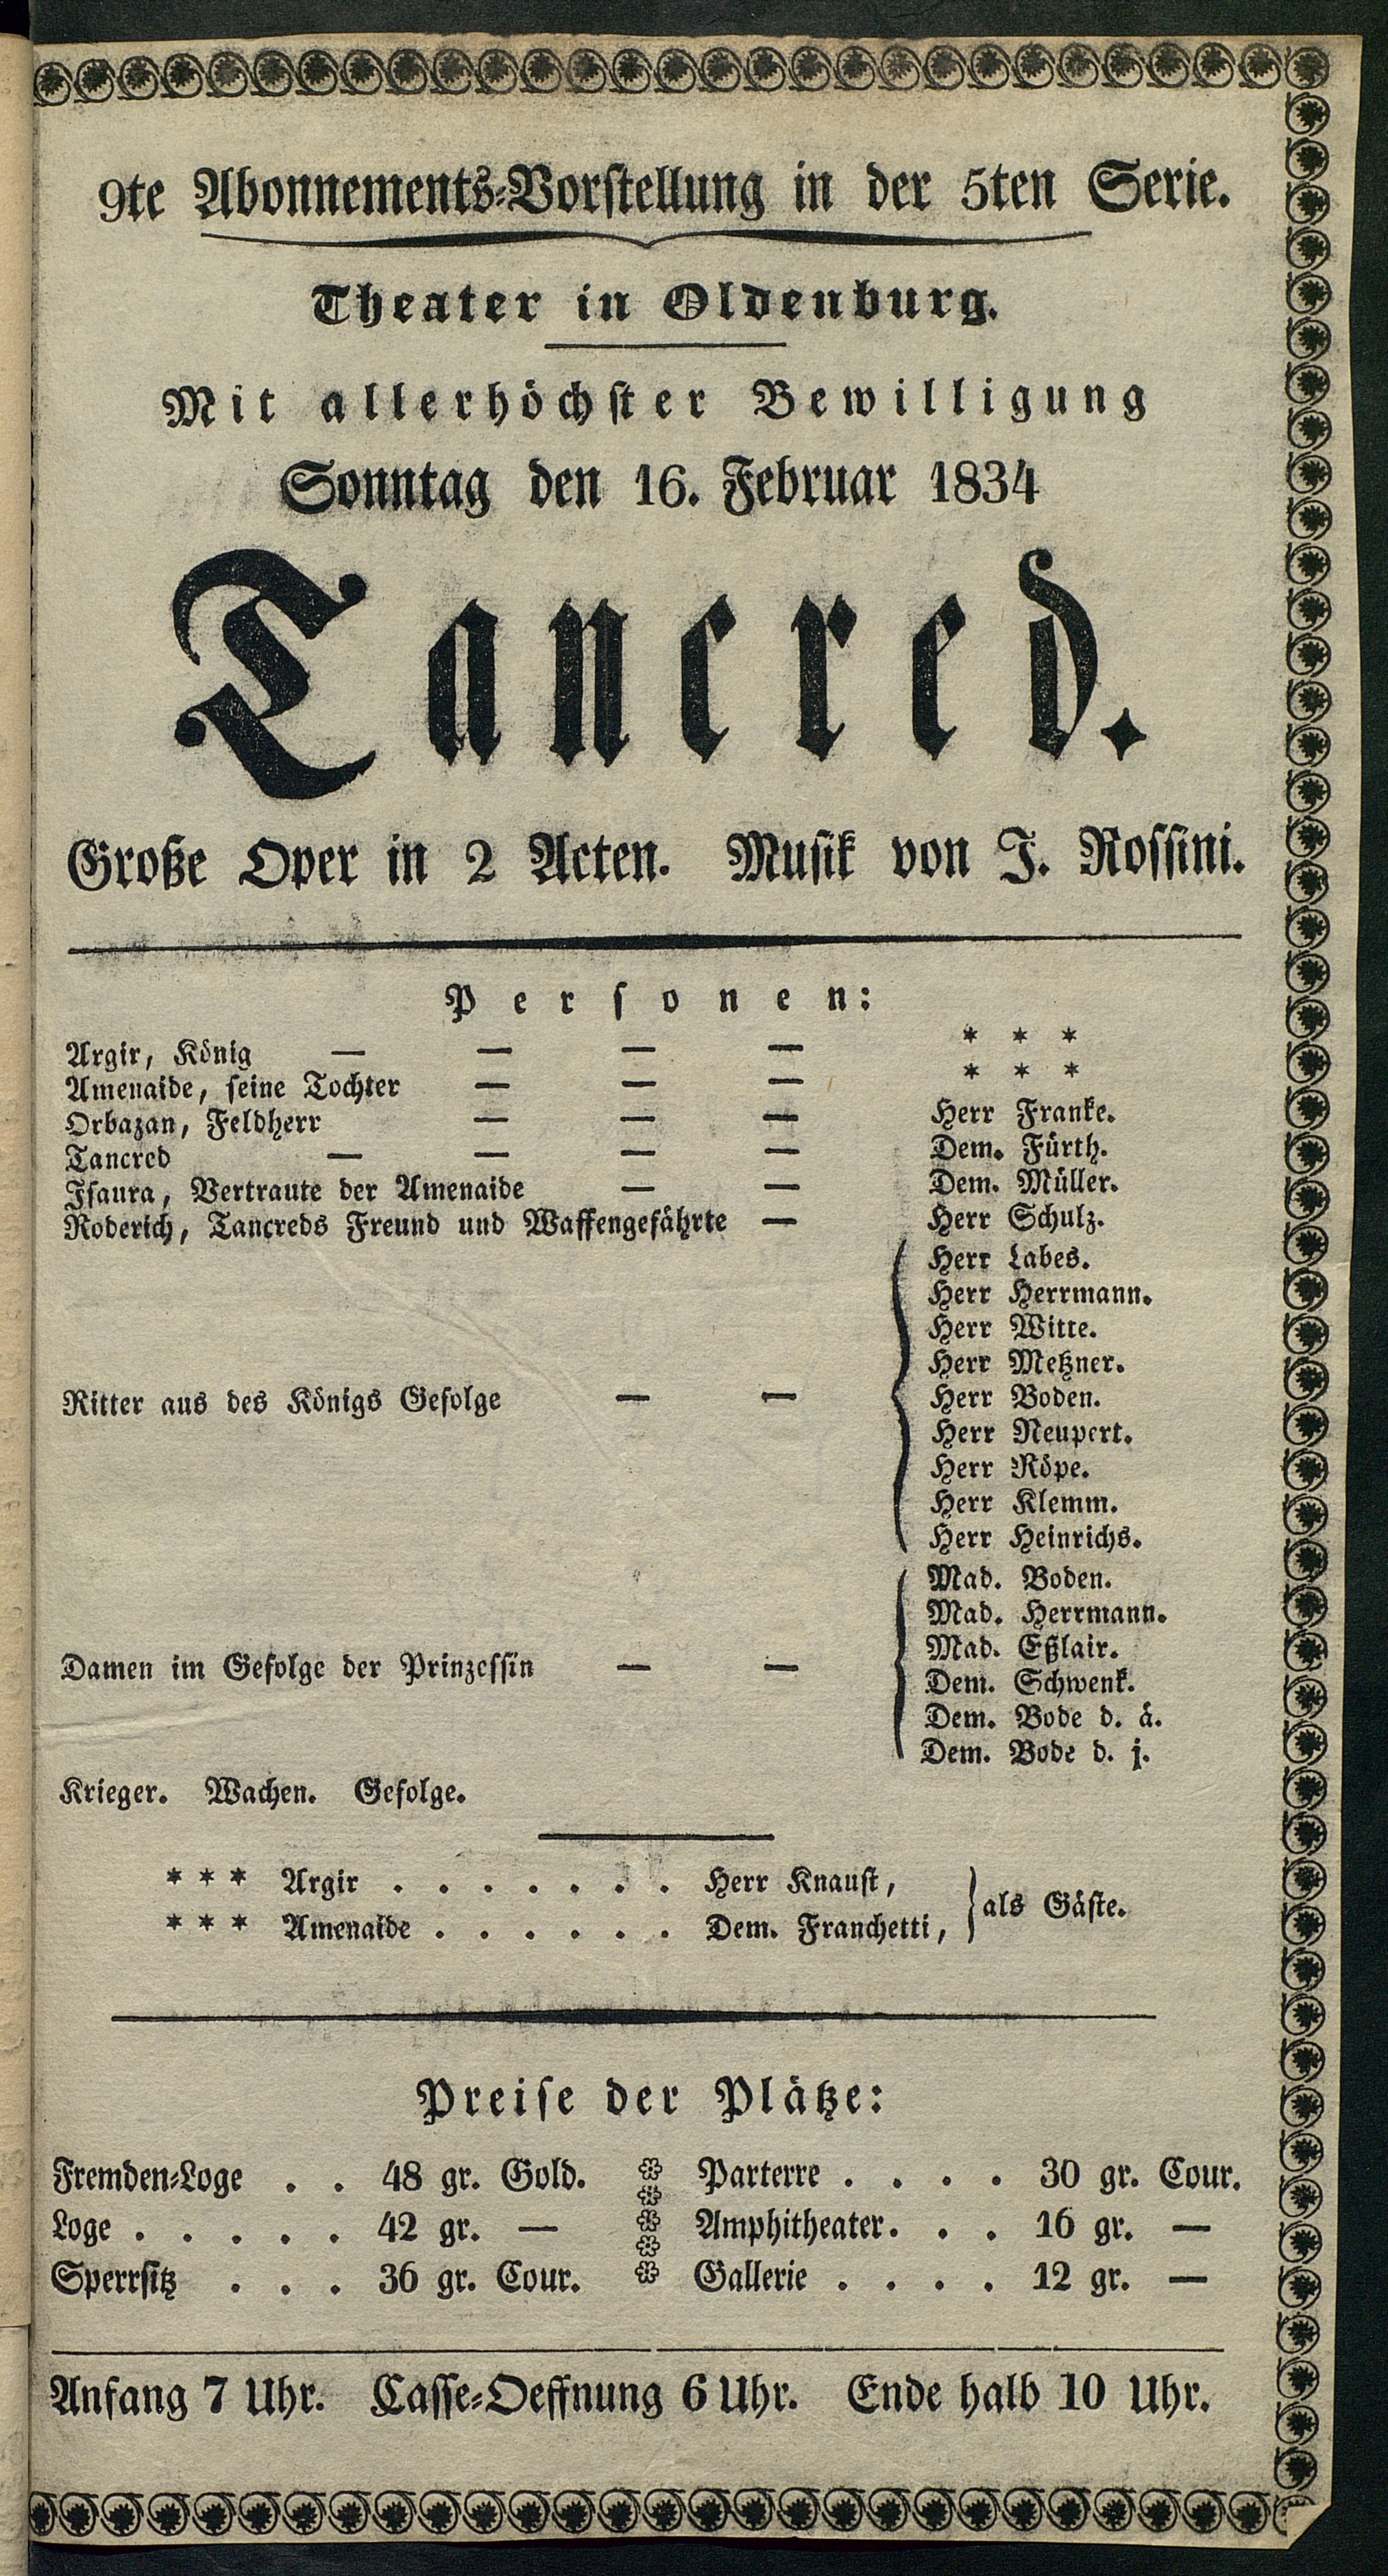 9te Abonnements-Vorstellung in der 5ten Serie.
Theater in Oldenburg.
Mit allerhöchster Bewilligung
Sonntag den 16. Februar 1834
Tancred.
Große Oper in 2 Acten. Musik von J. Rossini.
Personen:
Argir, König — — — — * * *
Amenaide, seine Tochter — — — * * *
Orbazan, Feldherr — — — Herr Franke.
Tancred — — — — Dem. Fürth.
Isaura, Vertraute der Amenaide — — Dem. Müller.
Roderich, Tancreds Freund und Waffengefährte — Herr Schulz.
Herr Labes.
Herr Herrmann.
Herr Witte.
Herr Metzner.
Ritter aus des Königs Gefolge — — Herr Boden.
Herr Neupert.
Herr Röpe.
Herr Klemm.
Herr Heinrichs.
Mad. Boden.
Mad. Herrmann.
Mad. Eßlair.
Damen im Gefolge der Prinzessin — — Dem. Schwenk.
Dem. Bode d. ä.
Dem. Bode d. j.
Krieger. Wachen. Gefolge.
* * * Argir . . . . . . . Herr Knaust,
* * * Amenaide . . . . . . Dem. Franchetti, } als Gäste.
Preise der Plätze:
Fremden-Loge . . 48 gr. Gold. Parterre . . . . 30 gr. Cour.
Loge . . . . . 42 gr. — Amphitheater. . . 16 gr. —
Sperrsitz . . . 36 gr. Cour. Gallerie . . . . 12 gr. —
Anfang 7 Uhr. Casse-Oeffnung 6 Uhr. Ende halb 10 Uhr.